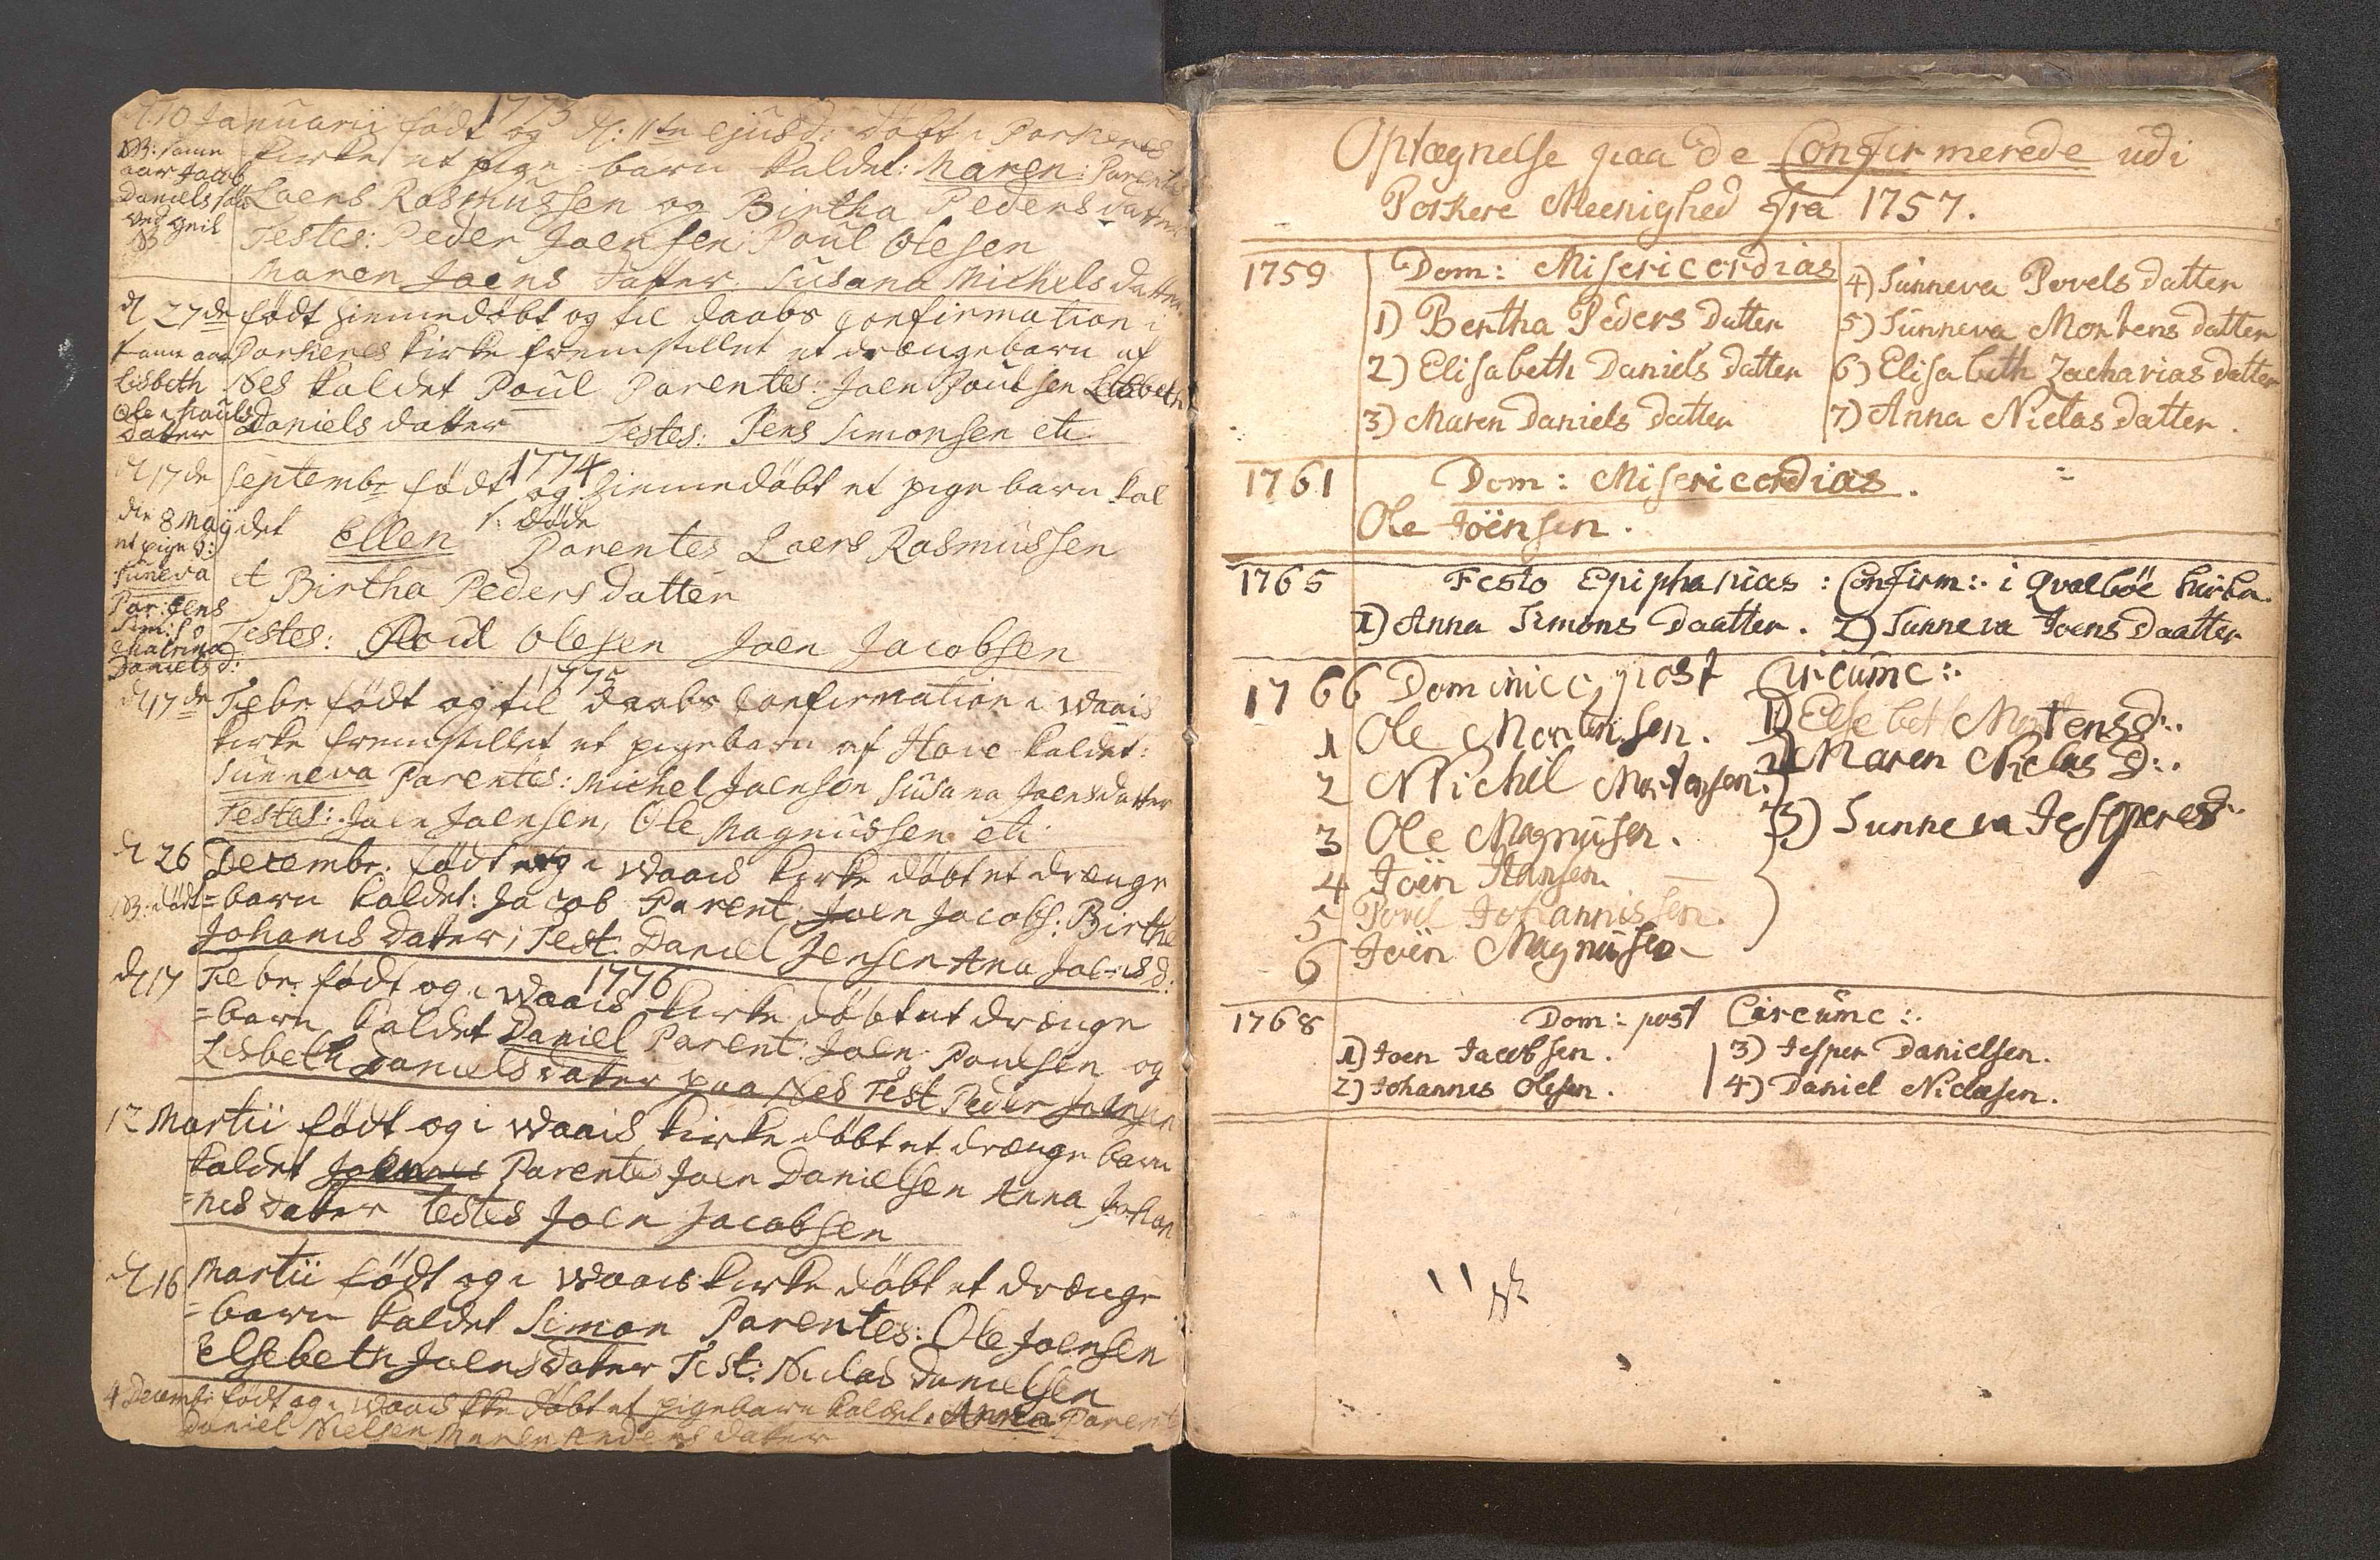 1773
d: 10 Januarii födt og d: 11te ejusd: döbt i Porkeres
kirke et pige barn kaldet: Maren: Parentes
Laers Rasmussen og Birtha Peders datter
Testes: Peder Joensen Poul Olesen
Maren Joens datter Susana Michels datter
NB: samme
aar Jacob
Daniels sön
NB
d 27de födt hiemmedöbt og til daabs confirmation i
Porkeres kirke fremstillet et drængebarn af
Nes kaldet Poul Parentes: Joen Poulsen Lisbeth
Daniels datter Testes: Jens Simonsen etc
samme aar
Lisbeth
Ole Pouls
datter
1774
d 17de Septembr födt og hiemmedöbt et pige barn kal
det Ellen döde Parentes Laers Rasmussen
et Birtha Peders datter
Testes: Poul Olesen Joen Jacobsen
den 8 Maÿ
et pige b:
Suneva
Par: Jens
Sim: s o
Catrina
Daniels d:
1775
d 17de Febr födt og til daabs confirmation i Waais
kirke fremstillet et pigebarn af Hove kaldet:
Sunneva Parentes: Michel Joensen Susana Joensdatter
Testes: Joen Joensen, Ole Magnussen etc
d 26 Decembr: födt og i Waais kirke döbt et drænge
NB: död =barn kaldet: Jacob Parent: Joen Jacobs: Birthe
Johanis dater; Test: Daniel Jensen Ana Joensd:
1776
d 17 Febr: födt og i Waais kirke döbt et drænge
=barn kaldet Daniel Parent: Joen Poulsen og
Lisbeth Daniels dater paa Nes Test Peder Joensen
12 Martii födt og i Waais kirke döbt et drænge barn
kaldet Parentes Joen Danielsen Anna Johan
=nes dater testes Joen Jacobsen
d 16 Martii födt og i Waais kirke döbt et drænge
=barn kaldet Simon Parentes: Ole Joensen
Elsebeth Joens dater Test: Niclas Danielsen
4 Decembr födt og i Waais kke döbt et pigebarn kaldet. Anna Parent
Daniel Nielsen Maren Anders dater
Optægnelse paa de Confirmerede udi
Porkere Meenighed fra 1757.
1759 Dom: Misericordias
1) Bertha Peders Datter
2) Elisabeth Daniels datter
3) Maren Daniels datter
4) Sunneva Povels datter
5) Sunneva Mortens datter
6) Elisabeth Zacharias datter
7) Anna Niclas datter.
1761 Dom: Misericordias.
Ole Joënsen.
1765 Festo Epiphanias: Confirm: i Qvalböe kirke.
1) Anna Simons Daatter. 2) Sunneva Joens Daatter
1766 Dominic: post Circumc:.
1 Ole Mortensen.
2 Michel Mortensen.
3 Ole Magnusen.
4 Joën Hansen.
5 Povel Johannissen.
6 Joën Magnusen
1) Elsebeth Mortensd:.
2) Maren Niclas D:.
3) Sunneva Jespersd:.
1768 Dom: post Circumc:.
1) Joen Jacobsen.
2) Johannes Olesen.
3) Jesper Danielsen.
4) Daniel Niclasen.